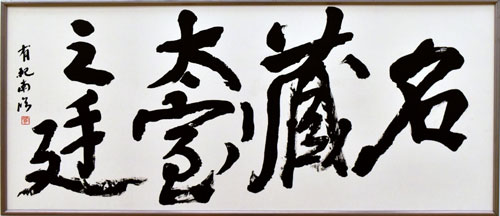 名
藏
太室
之廷
有紀南